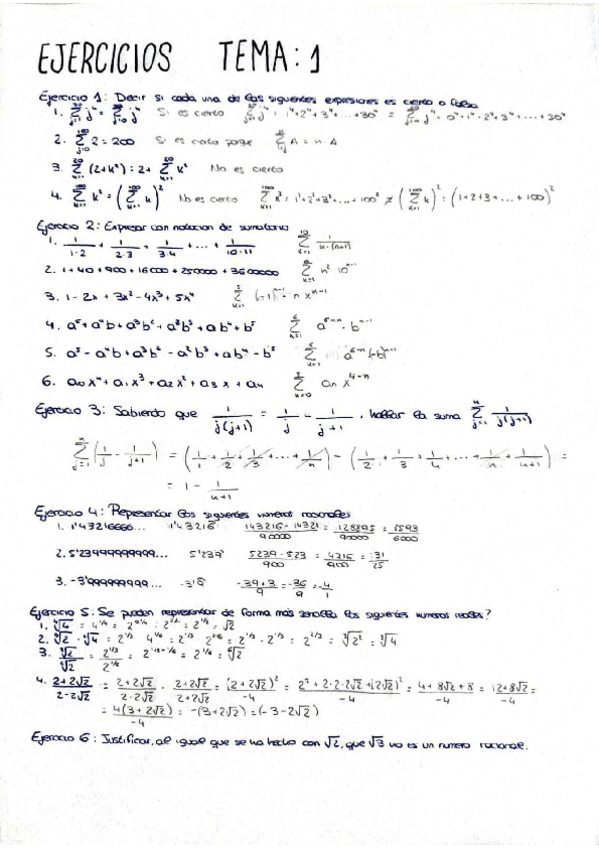 EJERCICIOS TEMA: 1
Ejercicio 1: Decir si cada una de las siguientes expresiones es cierto o falso
1. Σ j⁴ = Σ j⁴ Si es cierto Σ j⁴ = 1⁴+2⁴+3⁴+...+30⁴ = Σ j⁴ = 0⁴+1⁴+2⁴+3⁴+...+30⁴
2. Σ 2 = 200 Si es cierto porque Σ A = n·A
3. Σ (2+k²) = 2 + Σ k² No es cierto
4. Σ k² = (Σ k)² No es cierto Σ k² = 1²+2²+3²+...+100² ≠ (Σ k)² = (1+2+3+...+100)²
Ejercicio 2: Expresar con notacion de sumatorio
1. 1/1·2 + 1/2·3 + 1/3·4 + ... + 1/10·11 Σ 1/n·(n+1)
2. 1+40+900+16000+250000+3600000 Σ n² 10ⁿ⁻¹
3. 1-2x+3x²-4x³+5x⁴ Σ (-1)ⁿ⁻¹ n xⁿ⁻¹
4. a⁵+a⁴b+a³b²+a²b³+ab⁴+b⁵ Σ a⁶⁻ⁿ·bⁿ⁻¹
5. a⁵-a⁴b+a³b²-a²b³+ab⁴-b⁵ Σ a⁶⁻ⁿ(-b)ⁿ⁻¹
6. a₀x⁴+a₁x³+a₂x²+a₃x+a₄ Σ aₙ x⁴⁻ⁿ
Ejercicio 3: Sabiendo que 1/j(j+1) = 1/j - 1/j+1, hallar la suma Σ 1/j(j+1)
Σ (1/j - 1/j+1) = (1/1 + 1/2 + 1/3 + ... + 1/n) - (1/2 + 1/3 + 1/4 + ... + 1/n + 1/n+1) =
= 1 - 1/n+1
Ejercicio 4: Representar los siguientes numeros racionales
1. 1'43216666... 1'43216 143216-14321/90000 = 128895/90000 = 8593/6000
2. 5'23999999999... 5'239 5239-523/900 = 4716/900 = 131/25
3. -3'999999999... -3'9 -39+3/9 = -36/9 = -4/1
Ejercicio 5: Se pueden representar de forma más sencilla los siguientes numeros reales?
2+2√2/2-2√2 = 2+2√2/2-2√2 · 2+2√2/2+2√2 = (2+2√2)²/-4 = 2²+2·2·2√2+(2√2)²/-4 = 4+8√2+8/-4 = 12+8√2/-4 =
= 4(3+2√2)/-4 = -(3+2√2) = (-3-2√2)
Ejercicio 6: Justificar, al igual que se ha hecho con √2, que √3 no es un numero racional.